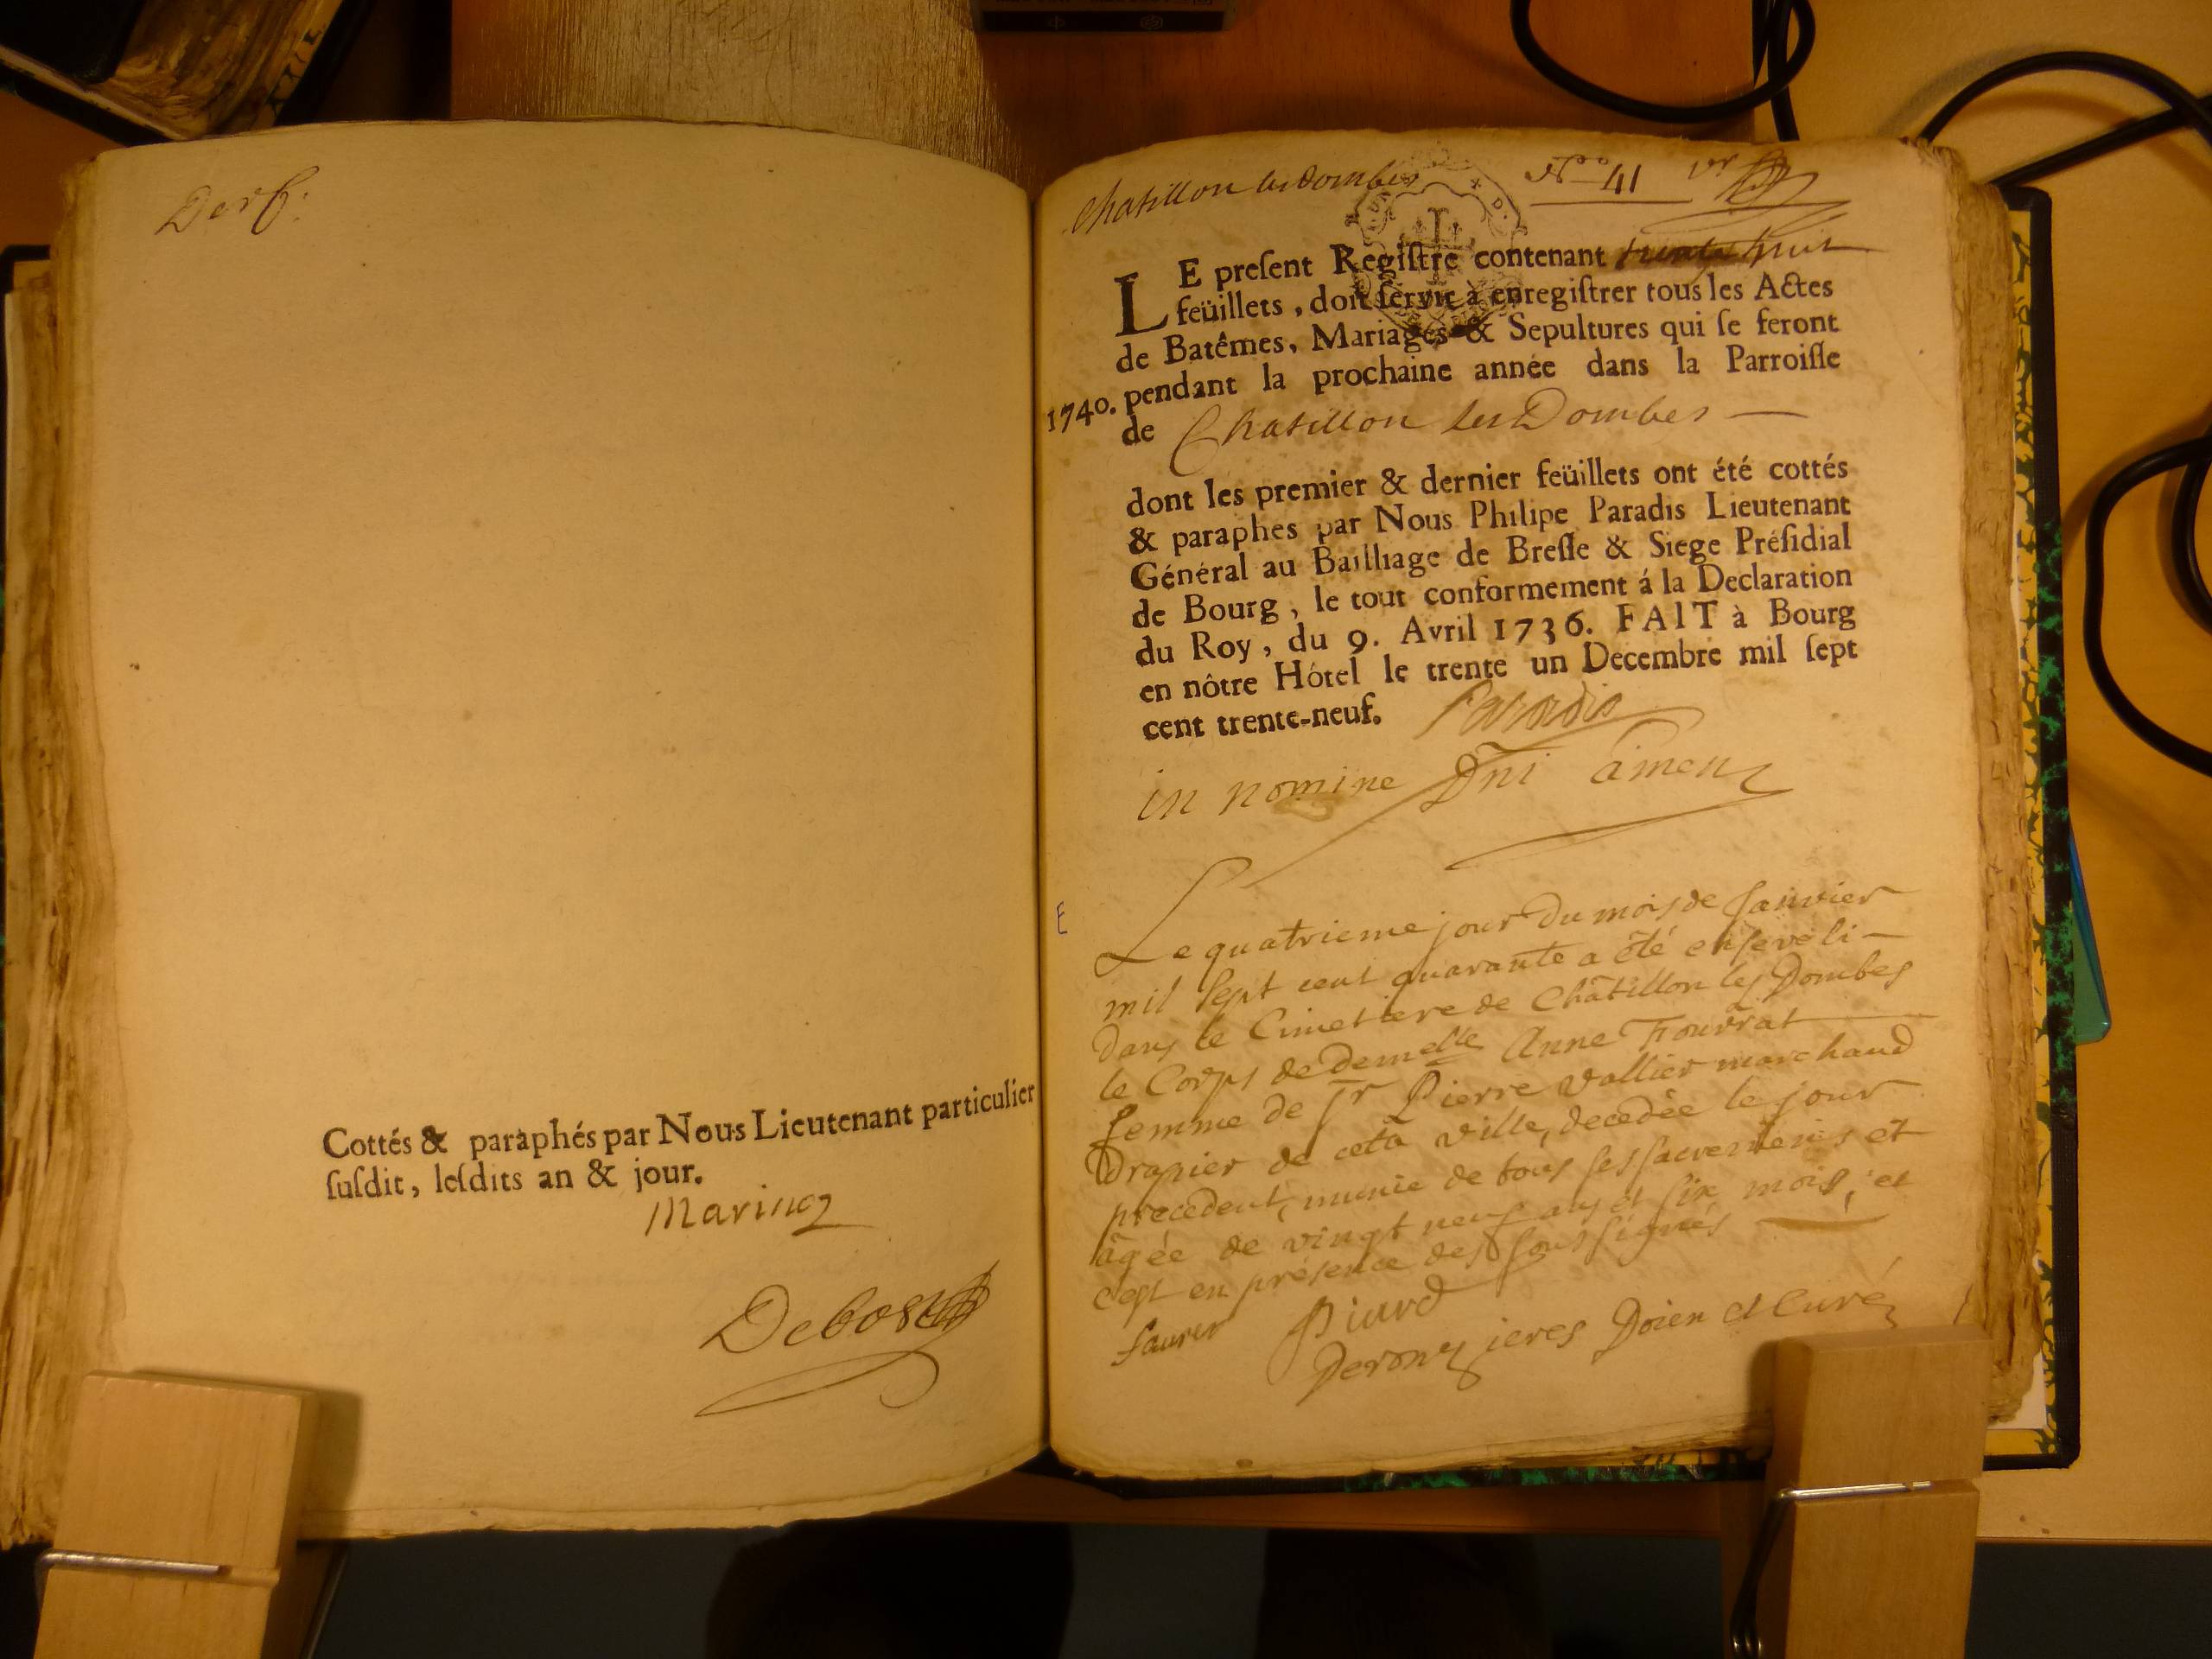 Derf:
Cottés & paraphés par Nous Lieutenant particulier
suſdit, leſdits an & jour.
Marinon
Debost
Chatillon les Dombes N.o 41 vr
LE preſent Regiſtre contenant trente huit
feüillets, doit ſervir à enregiſtrer tous les Actes
de Batêmes, Mariages & Sepultures qui ſe feront
1740. pendant la prochaine année dans la Parroiſſe
de Chatillon les Dombes
dont les premier & dernier feüillets ont été cottés
& paraphes par Nous Philipe Paradis Lieutenant
Général au Bailliage de Breſſe & Siege Préſidial
de Bourg, le tout conformement á la Declaration
du Roy, du 9. Avril 1736. FAIT à Bourg
en nôtre Hótel le trente un Decembre mil ſept
cent trente-neuf. Paradis
in nomine Dni amen
E
Le quatrieme jour du mois de Janvier
mil sept cent quarante a été enseveli
dans le Cimetiere de Châtillon les Dombes
le Corps de demelle Anne Fourrat
femme de sr Pierre Vallier marchand
Drapier de cette ville, decedée le jour
precedent, munie de tous ses sacremens et
âgée de vingt neuf ans et six mois, et
c'est en présence des soussignés
faurer Piard
Deronzieres Doien et Curé